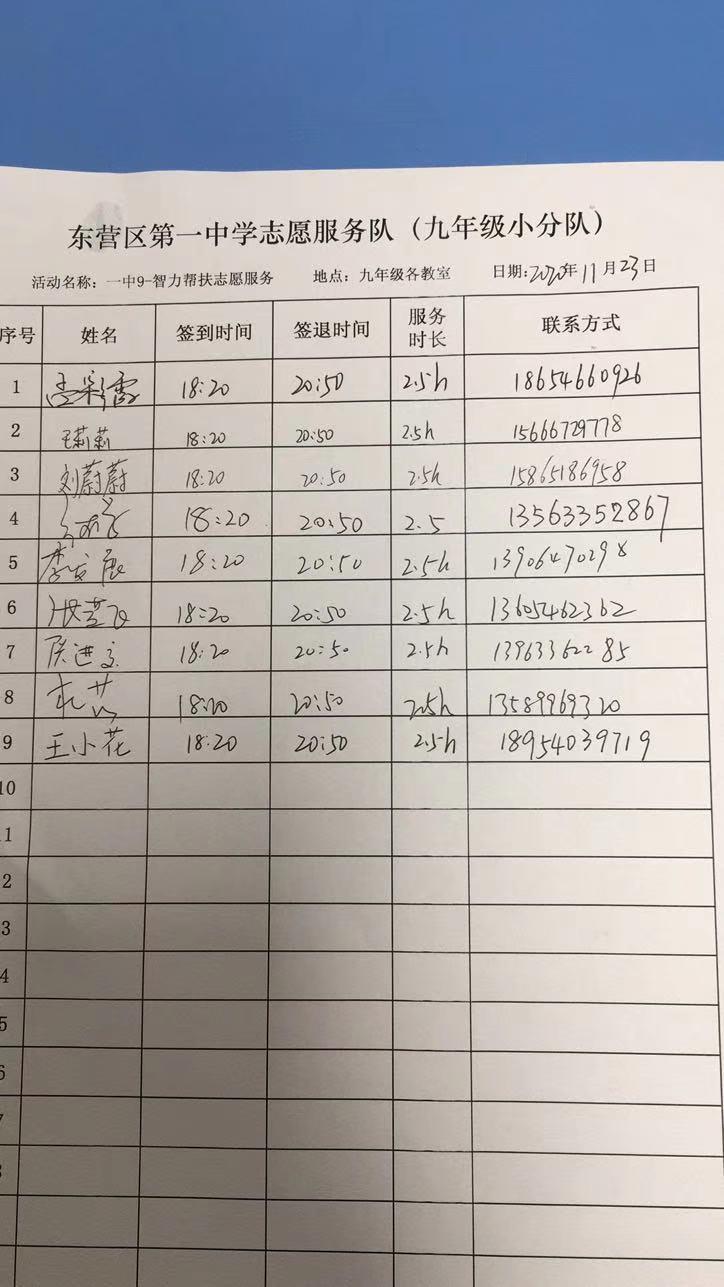 东营区第一中学志愿服务队（九年级小分队）
活动名称：一中9-智力帮扶志愿服务 地点：九年级各教室 日期:2020年11月23日
序号 姓名 签到时间 签退时间 服务时长 联系方式
1 18:20 20:50 2.5h 18654660926
2 王莉莉 18:20 20:50 2.5h 15666729778
3 刘蔚蔚 18:20 20:50 2.5h 15865186958
4 18:20 20:50 2.5 13563352867
5 李发展 18:20 20:50 2.5h 13906470298
6 18:20 20:50 2.5h 13605462362
7 18:20 20:50 2.5h 13963362285
8 18:20 20:50 2.5h 13589969320
9 王小花 18:20 20:50 2.5h 18954039719
10